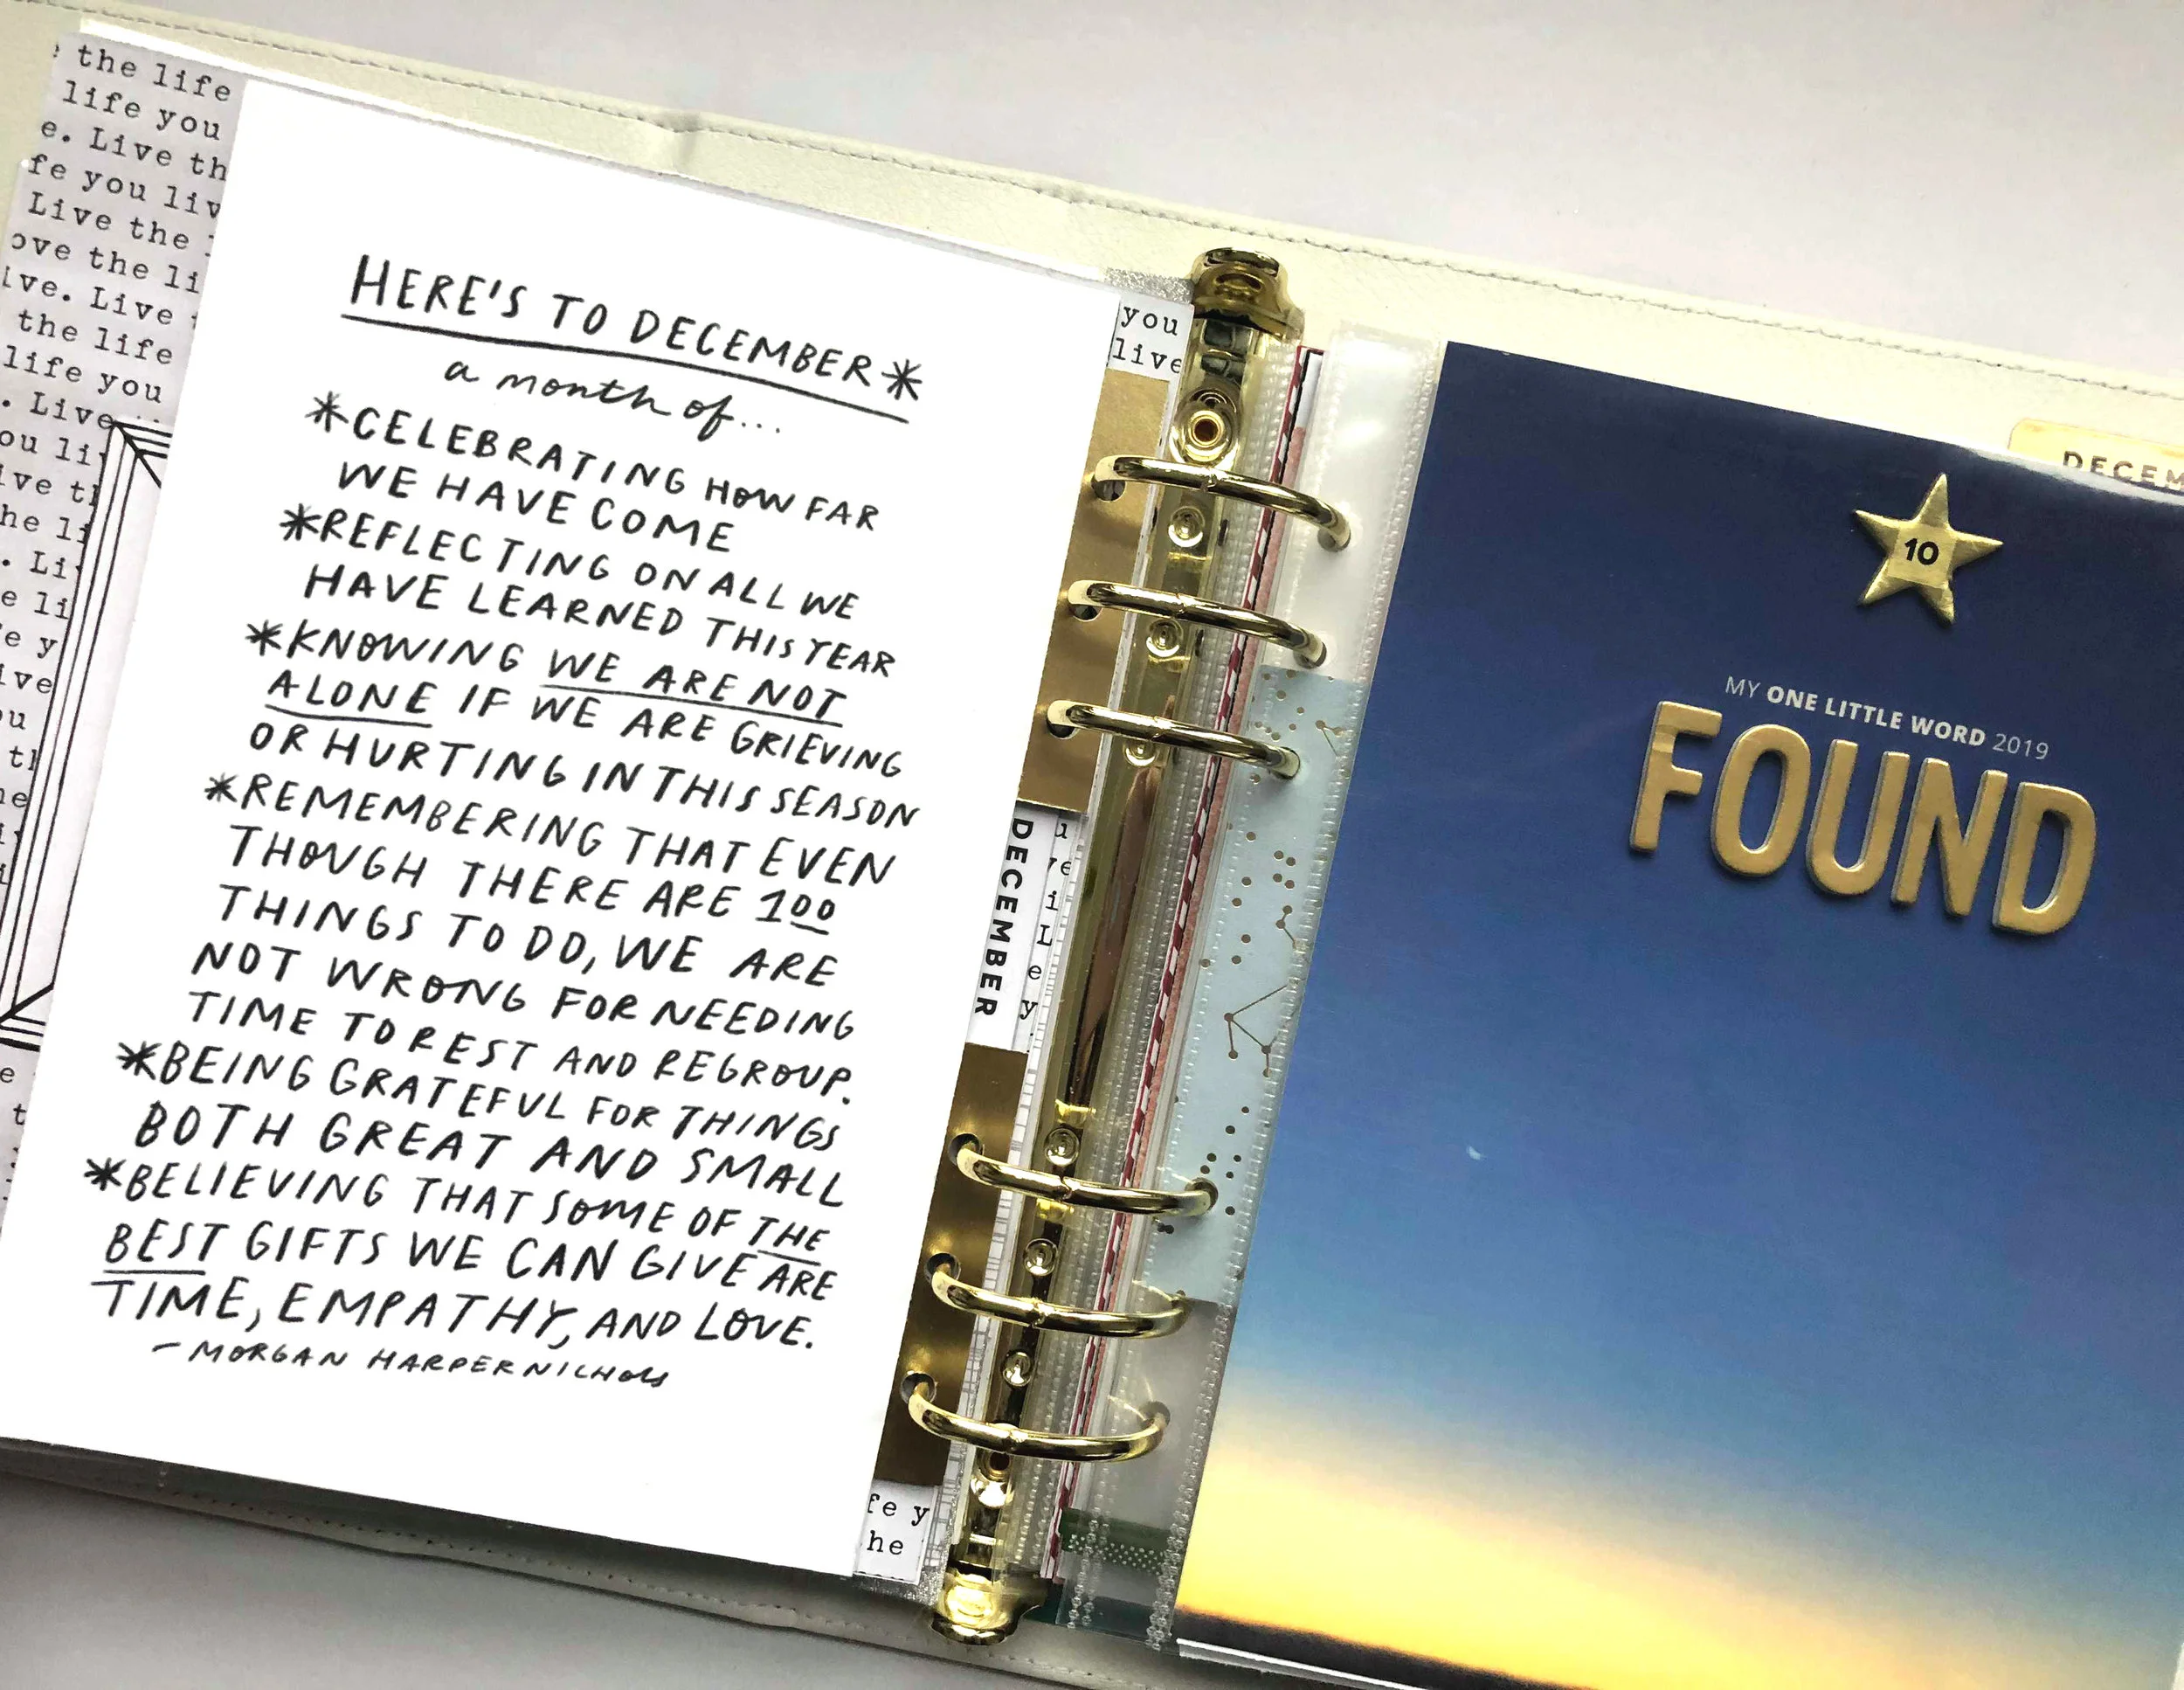 the life
life you
e. Live th
fe you liv
Live the
ove the li
ive. Live
the life
life you
. Live
ou li
ive t
he li
. Li
e li
e y
ive
ou
HERE'S TO DECEMBER*
a month of...
*CELEBRATING HOW FAR
WE HAVE COME
*REFLECTING ON ALL WE
HAVE LEARNED THIS YEAR
*KNOWING WE ARE NOT
ALONE IF WE ARE GRIEVING
OR HURTING IN THIS SEASON
*REMEMBERING THAT EVEN
THOUGH THERE ARE 100
THINGS TO DO, WE ARE
NOT WRONG FOR NEEDING
TIME TO REST AND REGROUP.
*BEING GRATEFUL FOR THINGS
BOTH GREAT AND SMALL
*BELIEVING THAT SOME OF THE
BEST GIFTS WE CAN GIVE ARE
TIME, EMPATHY, AND LOVE.
- MORGAN HARPER NICHOLS
you
live
DECEMBER
fe y
he
DECEM
10
MY ONE LITTLE WORD 2019
FOUND